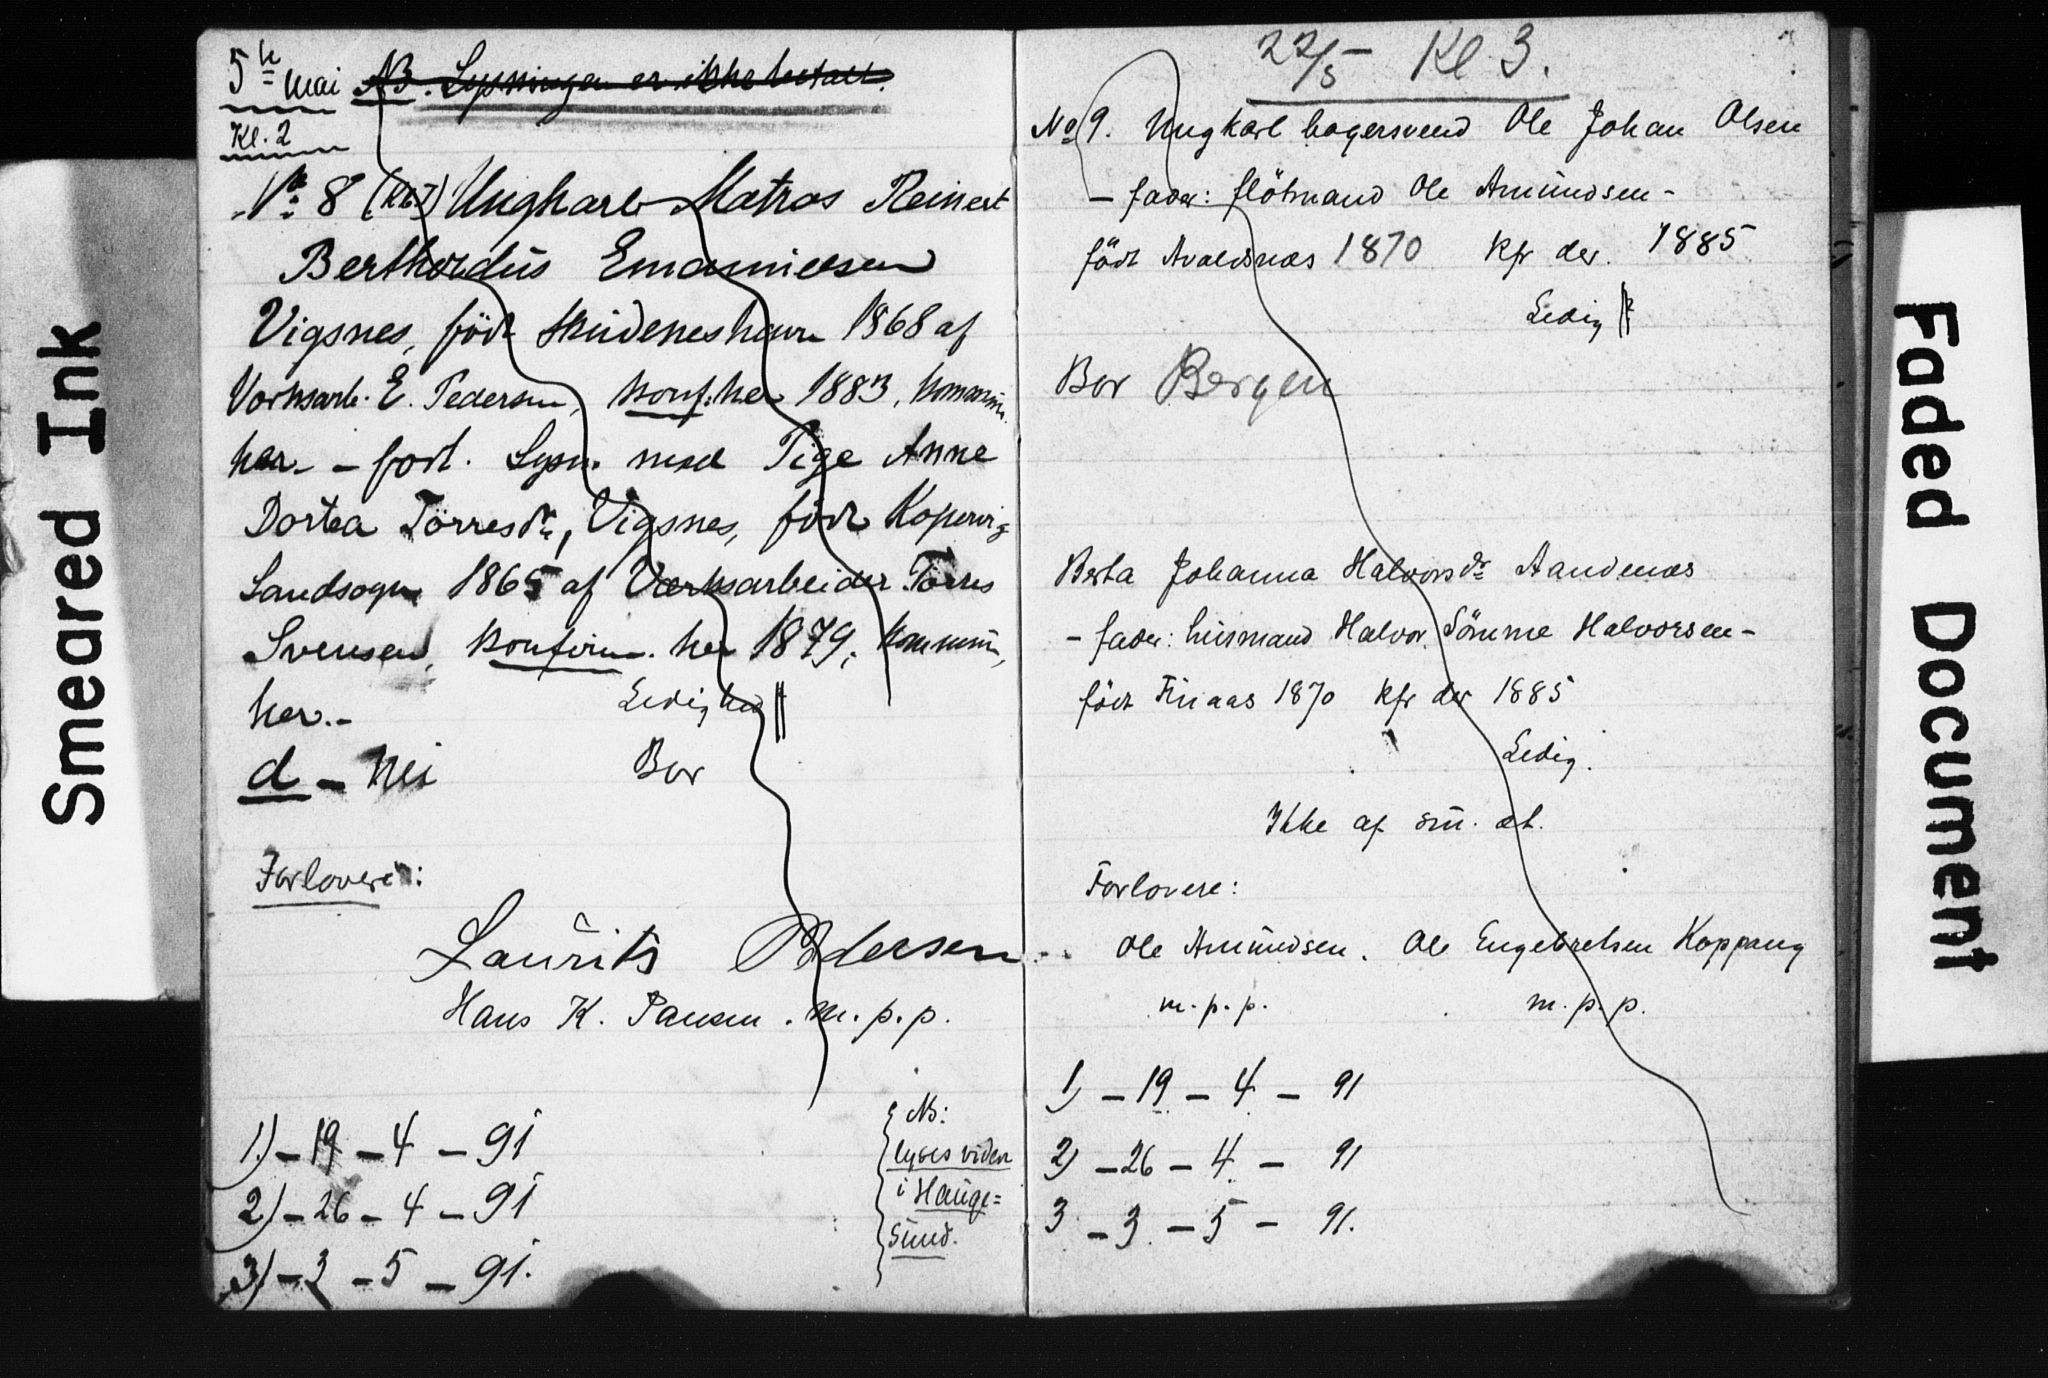 Smeared Ink
5te mai NB. Lysningen er ikke betalt.
Kl. 2
No 8 (Kl. 7) Ungkarl Matros Reinert
Berthordus Emanuelsen
Vigsnes, född Skudeneshavn 1868 af
Verksarb. E. Pedersen, konf. her 1883, kommun.
her. – forl. Lysn. med Pige Anne
Dortea Törresdr, Vigsnes, född Kopervig
Landsogn 1865 af Værksarbeider Törres
Svensen, konfirm. her 1879, kommun,
her. – Ledig her
d – Nei Bor
Forlovere:
Laurits Pedersen
Hans K. Hansen. m.p.p.
1.) – 19 – 4 – 91
2) – 26 – 4 – 91
3) – 3 – 5 – 91.
NB:
lyses viden
i Hauge=
sund.
22/5 Kl 3.
No 9. Ungkarl bagersvend Ole Johan Olsen
– fader: flötmand Ole Amundsen –
födt Avaldsnæs 1870 kfr der. 1885
Ledig
Bor Bergen
Berta Johanna Halvorsdr Aandenæs
– fader: husmand Halvor Sömme Halvorsen –
födt Finaas 1870 kfr der 1885
Ledig.
Ikke af sm. æt.
Forlovere:
Ole Amundsen. Ole Engebretsen Koppang
m.p.p. m.p.p.
1) – 19 – 4 – 91
2) – 26 – 4. – 91
3 – 3. – 5 – 91.
Faded Document